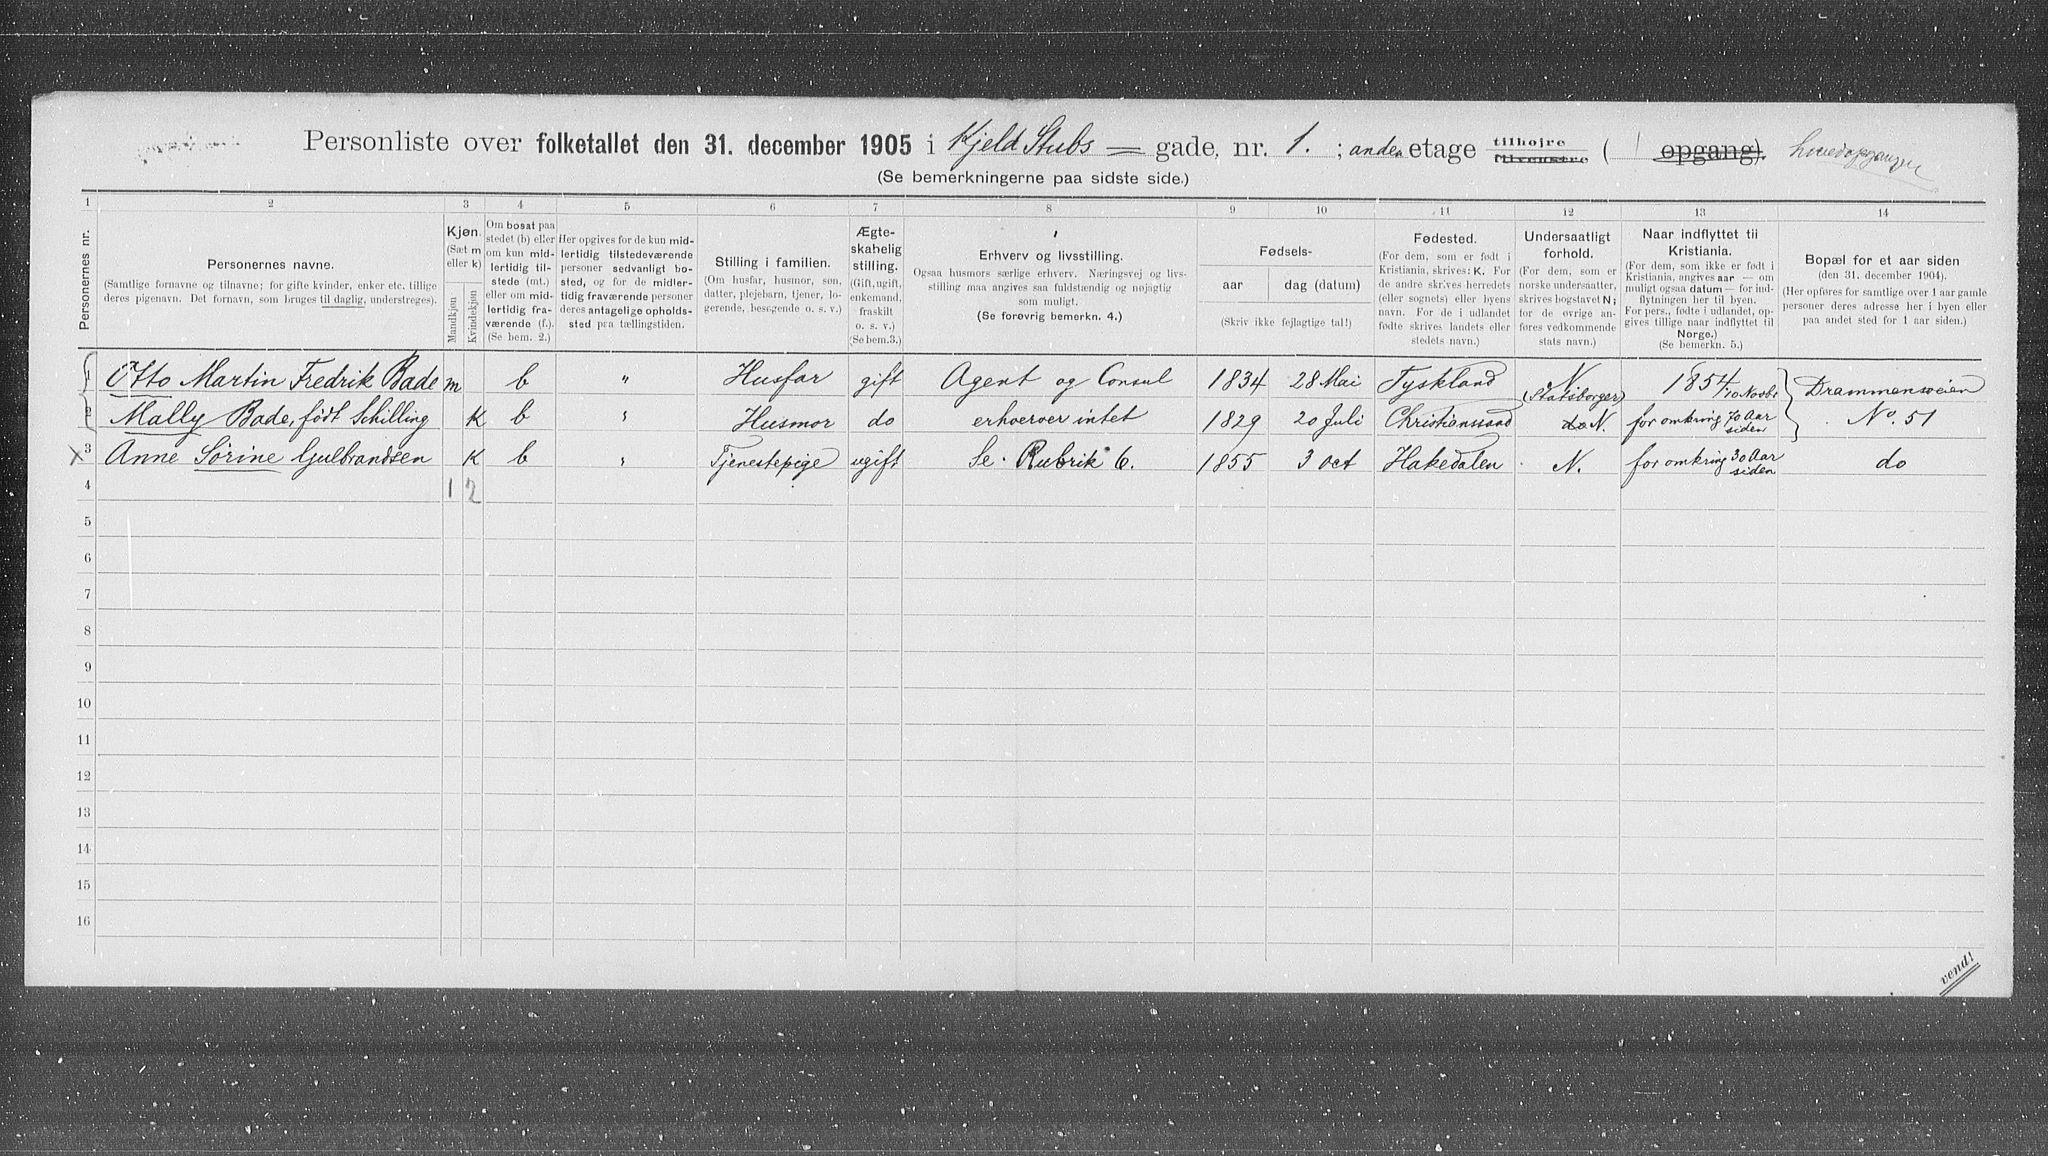 Personliste over folketallet den 31. december 1905 i Kjeld Stubs = gade, nr. 1. ; anden etage tilhøjre tilvenstre ( opgang).
(Se bemerkningerne paa sidste side.)
1 2 3 4 5 6 7 8 9 10 11 12 13 14
Personernes nr.
Personernes navne.
(Samtlige fornavne og tilnavne; for gifte kvinder, enker etc. tillige
deres pigenavn. Det fornavn, som bruges til daglig, understreges).
Kjøn.
(Sæt m
eller k)
Mandkjøn
Kvindekjøn
Om bosat paa
stedet (b) eller
om kun mid-
lertidig til-
stede (mt.)
eller om mid-
lertidig fra-
værende (f.).
(Se bem. 2.)
Her opgives for de kun mid-
lertidig tilstedeværende
personer sedvanligt bo-
sted, og for de midler-
tidig fraværende personer
deres antagelige opholds-
sted paa tællingstiden.
Stilling i familien.
(Om husfar, husmor, søn,
datter, plejebarn, tjener, lo-
gerende, besøgende o. s. v.)
Ægte-
skabelig
stilling.
(Gift, ugift,
enkemand,
fraskilt
o. s. v.)
(Se bem.3.)
Erhverv og livsstilling.
Ogsaa husmors særlige erhverv. Næringsvej og livs-
stilling maa angives saa fuldstændig og nøjagtig
som muligt.
(Se forøvrig bemerkn. 4.)
Fødsels-
aar dag (datum)
(Skriv ikke fejlagtige tal!)
Fødested.
(For dem, som er født i
Kristiania, skrives: K. For
de andre skrives herredets
(eller sognets) eller byens
navn. For de i udlandet
fødte skrives landets eller
stedets navn.)
Undersaatligt
forhold.
(For dem, som er
norske undersaatter,
skrives bogstavet N;
for de øvrige an-
føres vedkommende
stats navn.)
Naar indflyttet til
Kristiania.
(For dem, som ikke er født i
Kristiania, angives aar — om
muligt ogsaa datum — for ind-
flytningen her til byen.
For pers., fødte i udlandet, op-
gives tillige naar indflyttet til
Norge.)
(Se bemerkn. 5.)
Bopæl for et aar siden
(den 31. december 1904).
(Her opføres for samtlige over 1 aar gamle
personer deres adresse her i byen eller
paa andet sted for 1 aar siden.)
1 Otto Martin Fredrik Bade m b " Husfar gift Agent og Consul 1834 28 Mai Tyskland N (Statsborger) 1854 /10 Novbr Drammensveien
2 Mally Bade, født Schilling K b " Husmor do erhverver intet 1829 20 Juli Christianssand do N. for omkring 70 Aar siden No. 51
x 3 Anne Sørine Gulbrandsen K b " Tjenestepige ugift Se Rubrik 6. 1855 3 Oct Hakedalen N. for omkring 30 Aar siden do
4 1 2
5
6
7
8
9
10
11
12
13
14
15
16
vend!